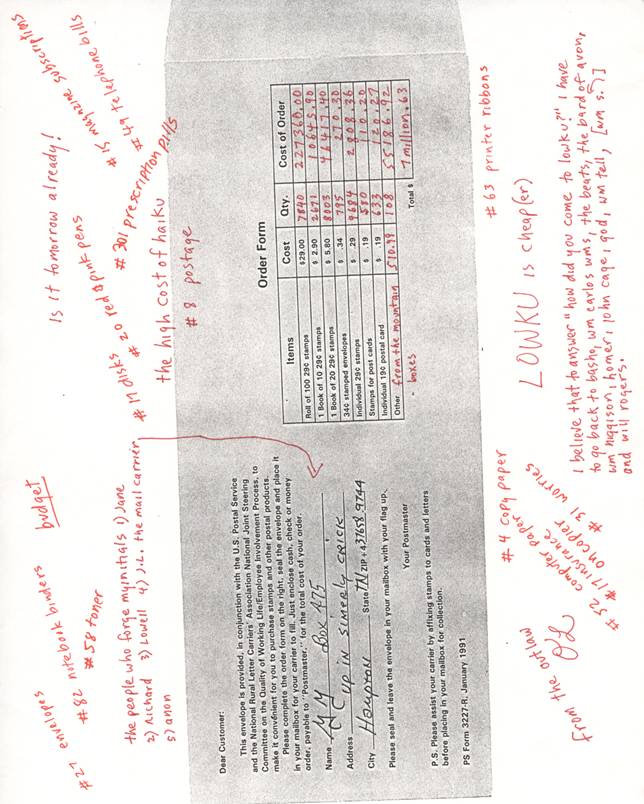 #27 envelopes
#82 notebook binders
#58 toner
budget
Is it tomorrow already!
#15 magazine subscriptions
#49 telephone bills
#20 red & pink pens
#301 prescription pills
the high cost of haiku
#8 postage
the people who forge my initials 1) Jane
2) Richard 3) Lowell 4) J.C. the mail carrier
5) anon
Dear Customer:
This envelope is provided, in conjunction with the U.S. Postal Service
and the National Rural Letter Carriers' Association National Joint Steering
Committee on the Quality of Working Life/Employee Involvement Process, to
make it convenient for you to purchase stamps and other postal products.
Please complete the order form on the right, seal the envelope and place it
in your mailbox for your carrier to fill. Just enclose cash, check or money
order, payable to "Postmaster," for the total cost of your order.
Name
Box 475
Address UP IN SIMERLY CRICK
City Hampton State TN ZIP + 4 37658 9744
Please seal and leave the envelope in your mailbox with your flag up.
Your Postmaster
P.S. Please assist your carrier by affixing stamps to cards and letters
before placing in your mailbox for collection.
PS Form 3227-R, January 1991
Order Form
Items Cost Qty. Cost of Order
Roll of 100 29¢ stamps $29.00 7840 227360.00
1 Book of 10 29¢ stamps $ 2.90 2671 10645.90
1 Book of 20 29¢ stamps $ 5.80 8003 46417.40
34¢ stamped envelopes $ .34 795 270.30
Individual 29¢ stamps $ .29 9684 2808.36
Stamps for post cards $ .19 580 110.20
Individual 19¢ postal card $ .19 633 120.27
Other: from the mountain 510.99 108 55186.92
boxes
Total $ 7 million.63
#4 copy paper
#63 printer ribbons
computer paper
#17 insurance on copier
#31 worries
from the outlaw
LOWKU is cheap(er)
I believe that to answer "how did you come to lowku?" I have
to go back to basho, wm carlos wms, the beats, the bard of avon,
wm higgison, homer, john cage, god, wm tell, [wm s.?]
and will rogers.